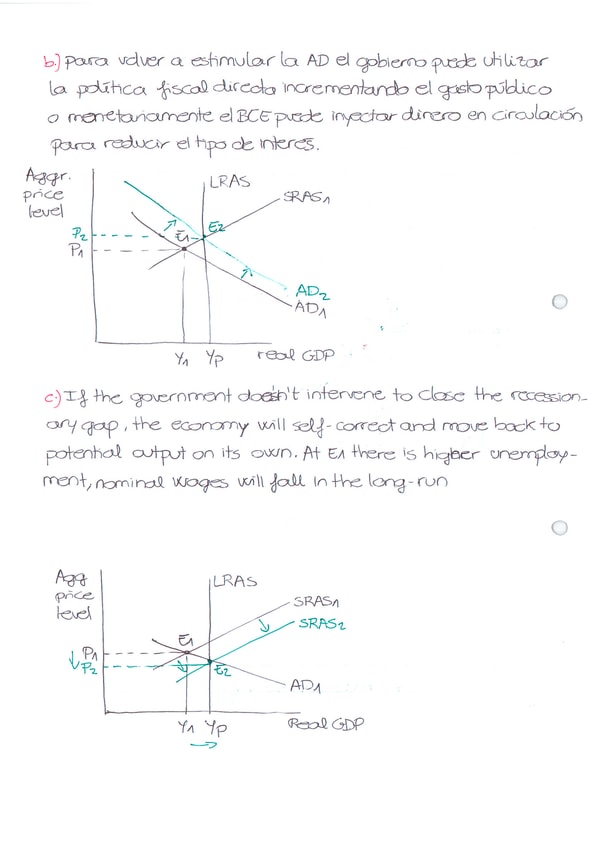 b.) para volver a estimular la AD el gobierno puede utilizar
la política fiscal directa incrementando el gasto público
o monetariamente el BCE puede inyectar dinero en circulación
para reducir el tipo de interes.
Aggr.
price
level
LRAS
SRAS1
P2
P1
E1
E2
AD2
AD1
Y1 Yp real GDP
c.) If the government doesn't intervene to close the recession-
ary gap, the economy will self-correct and move back to
potential output on its own. At E1 there is higher unemploy-
ment, nominal wages will fall in the long-run
Agg
price
level
LRAS
SRAS1
SRAS2
E1
P1
P2
E2
AD1
Y1 Yp Real GDP